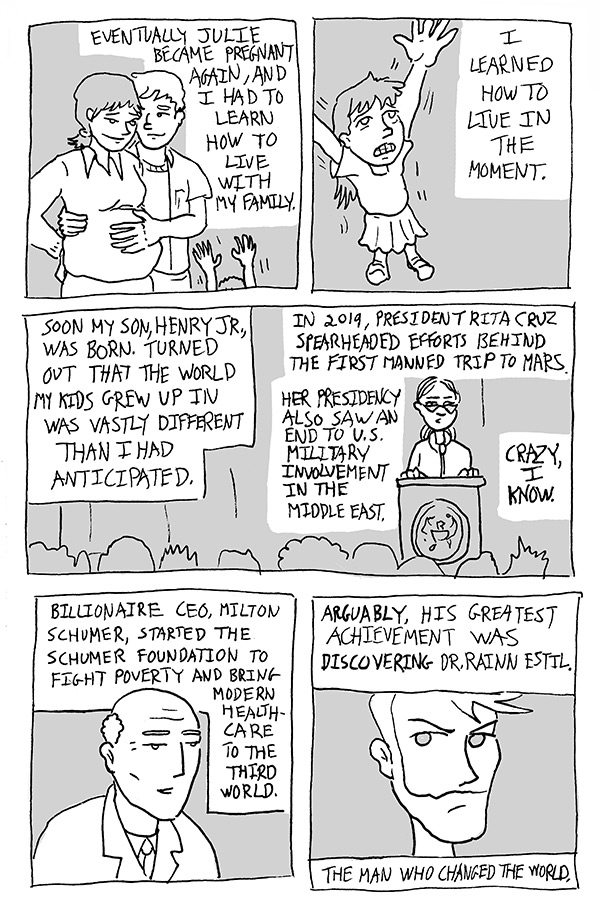 EVENTUALLY JULIE
BECAME PREGNANT
AGAIN, AND
I HAD TO
LEARN
HOW TO
LIVE
WITH
MY FAMILY.
I
LEARNED
HOW TO
LIVE IN
THE
MOMENT.
SOON MY SON, HENRY JR.,
WAS BORN. TURNED
OUT THAT THE WORLD
MY KIDS GREW UP IN
WAS VASTLY DIFFERENT
THAN I HAD
ANTICIPATED.
IN 2019, PRESIDENT RITA CRUZ
SPEARHEADED EFFORTS BEHIND
THE FIRST MANNED TRIP TO MARS.
HER PRESIDENCY
ALSO SAW AN
END TO U.S.
MILITARY
INVOLVEMENT
IN THE
MIDDLE EAST.
CRAZY,
I
KNOW.
BILLIONAIRE CEO, MILTON
SCHUMER, STARTED THE
SCHUMER FOUNDATION TO
FIGHT POVERTY AND BRING
MODERN
HEALTH-
CARE
TO THE
THIRD
WORLD.
ARGUABLY, HIS GREATEST
ACHIEVEMENT WAS
DISCOVERING DR. RAINN ESTIL.
THE MAN WHO CHANGED THE WORLD.